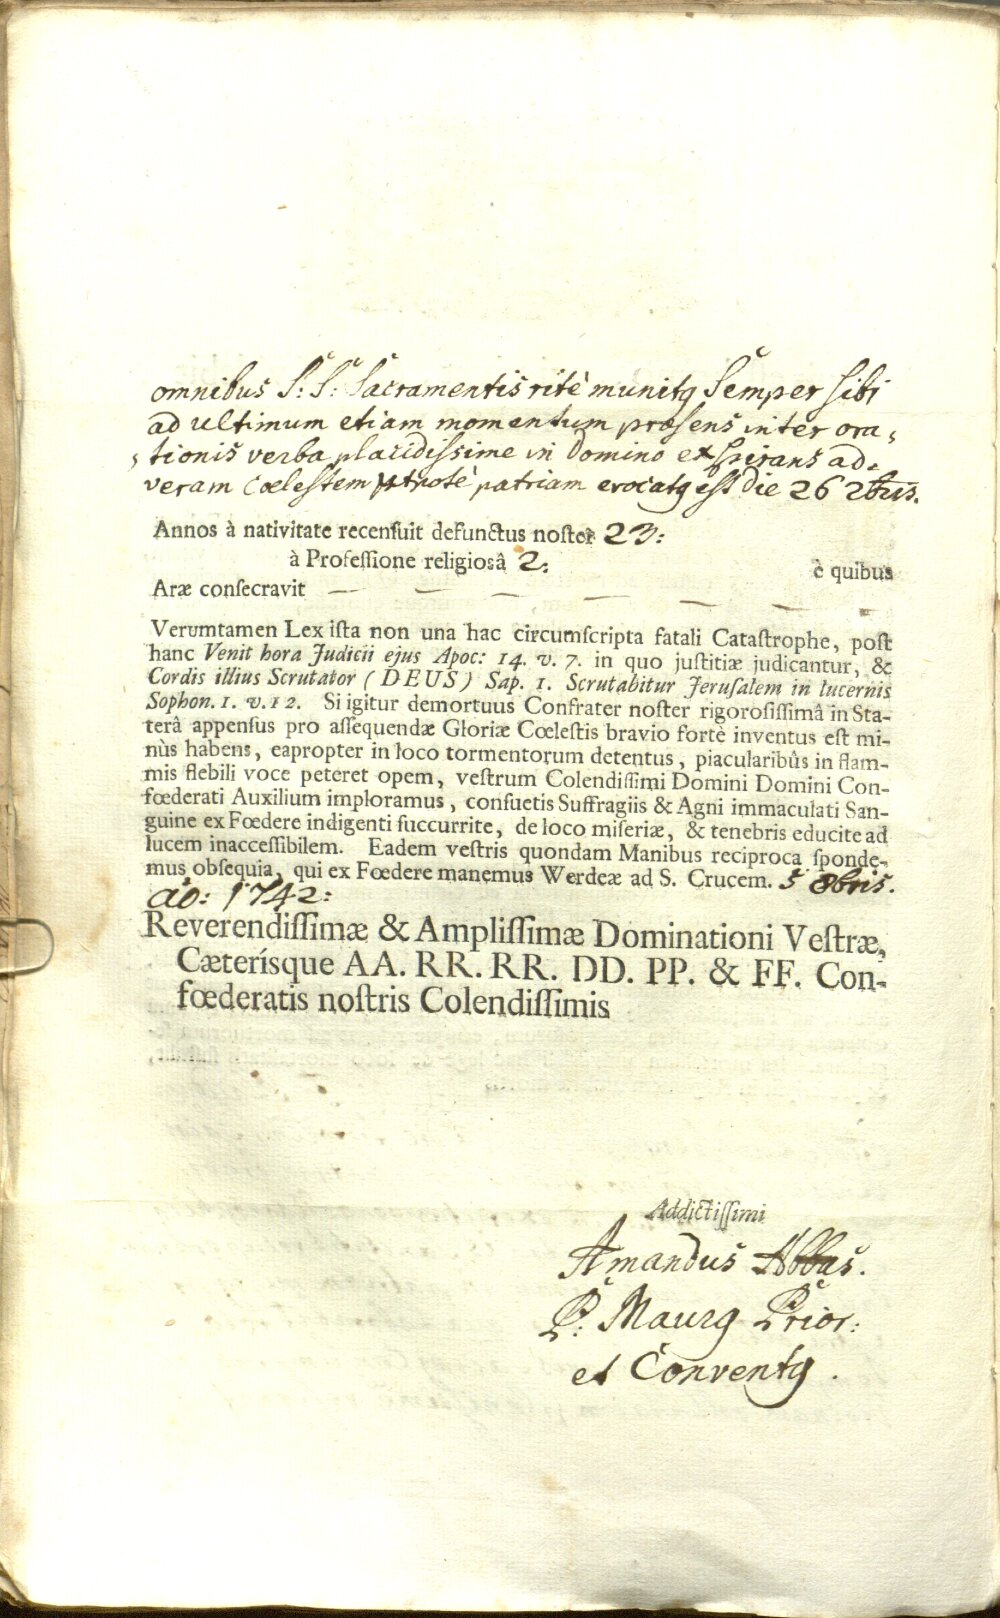 omnibus S: S: Sacramentis ritè munitꝯ Semper sibi
ad ultimum etiam momentum præsens inter ora,
,tionis verba placidissime in Domino exspirans ad
veram cœlestem patriam evocatꝯ est die 26 7bris.
Annos à nativitate recenſuit defunctus noſter 23:
à Profeſſione religiosâ 2: è quibus
Aræ conſecravit — — — — — — —
Verumtamen Lex iſta non una hac circumſcripta fatali Cataſtrophe, poſt
hanc Venit hora Judicii ejus Apoc: 14. v. 7. in quo juſtitiæ judicantur, &
Cordis illius Scrutator ( DEUS ) Sap. 1. Scrutabitur Jeruſalem in lucernis
Sophon. 1. v. 12. Si igitur demortuus Confrater noſter rigoroſiſſimâ in Sta-
terâ appenſus pro aſſequendæ Gloriæ Cœleſtis bravio fortè inventus eſt mi-
nùs habens, eapropter in loco tormentorum detentus, piacularibûs in flam-
mis flebili voce peteret opem, veſtrum Colendiſſimi Domini Domini Con-
fœderati Auxilium imploramus, conſuetis Suffragiis & Agni immaculati San-
guine ex Fœdere indigenti ſuccurrite, de loco miſeriæ, & tenebris educite ad
lucem inacceſſibilem. Eadem veſtris quondam Manibus reciproca ſponde-
mus obſequia, qui ex Fœdere manemus Werdeæ ad S. Crucem. 5 8bris.
ao: 1742:
Reverendiſſimæ & Ampliſſimæ Dominationi Veſtræ,
Cæterísque AA. RR. RR. DD. PP. & FF. Con-
fœderatis noſtris Colendiſſimis
Addictiſſimi
Amandus Abbas.
P: Maurꝯ Prior:
et Conventꝯ.